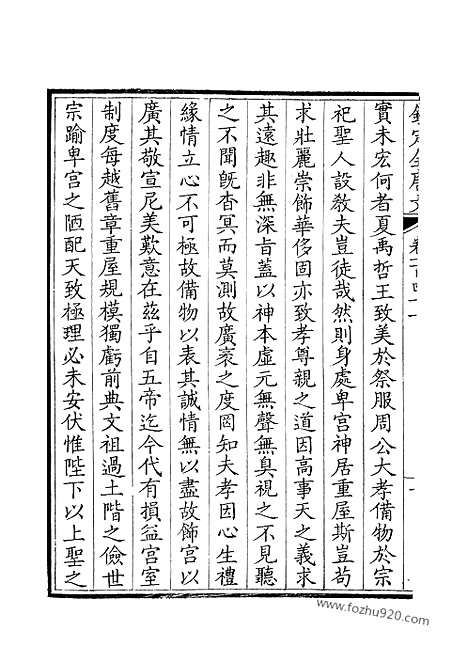 實未宏何者夏禹哲王致美於祭服周公大孝備物於宗
祀聖人設敎夫豈徒哉然則身處卑宮神居重屋斯豈苟
求壯麗崇飾華侈固亦致孝尊親之道因高事天之義求
其遠趣非無深旨蓋以神本虛元無聲無臭視之不見聽
之不聞旣杳冥而莫測故廣袤之度罔知夫孝因心生禮
緣情立心不可極故備物以表其誠情無以盡故飾宮以
廣其敬宣尼美歎意在茲乎自五帝迄今代有損益宮室
制度每越舊章重屋規模獨虧前典文祖過土階之儉世
宗踰卑宮之陋配天致極理必未安伏惟陛下以上聖之
www.fozhu920.com